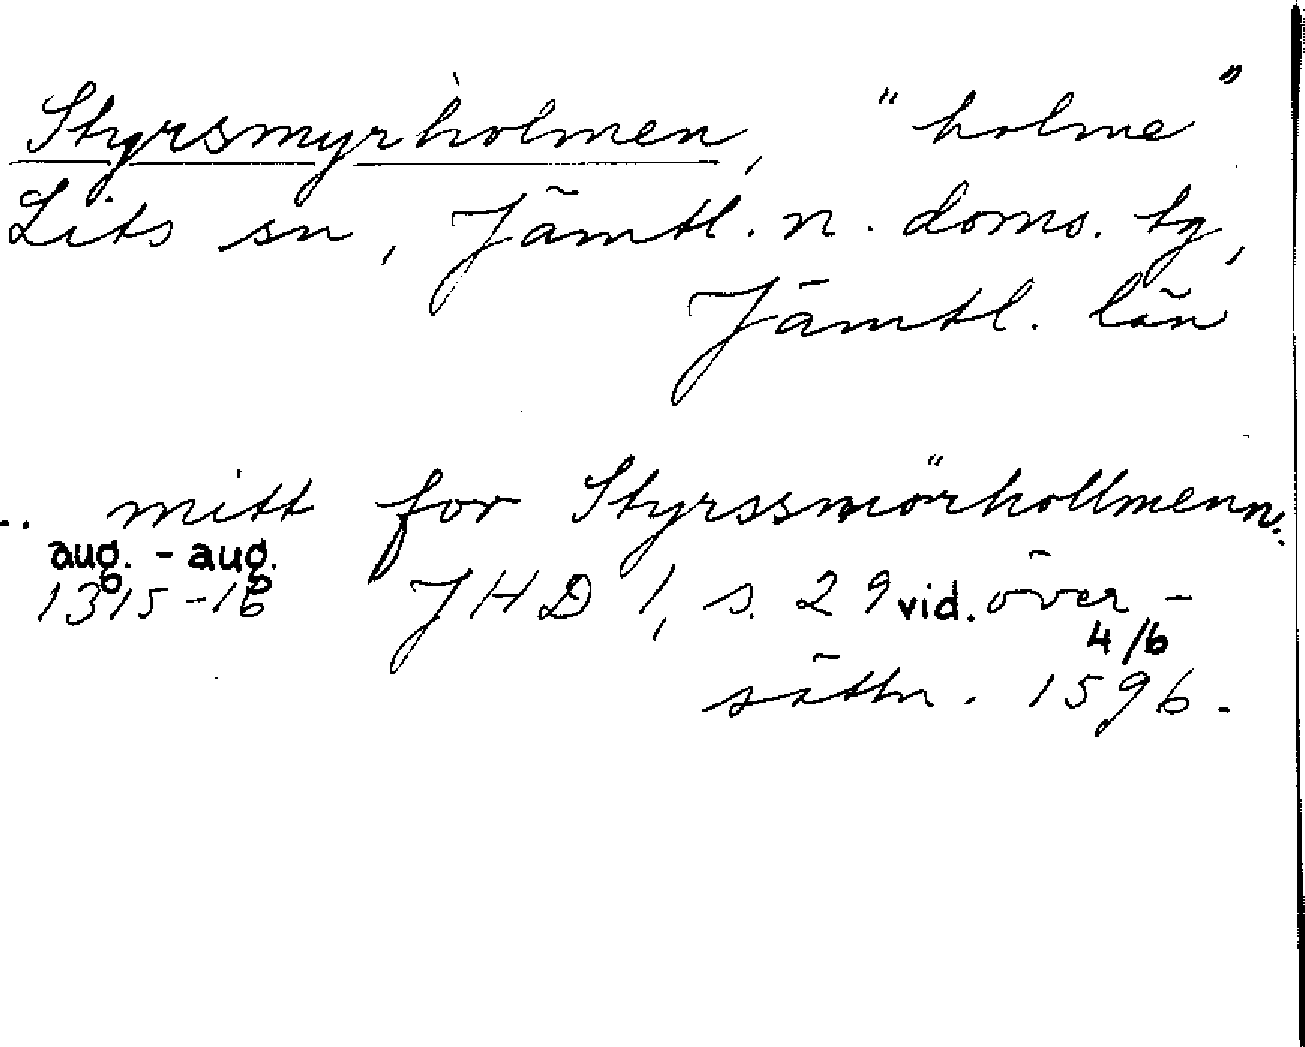 Styrsmyrholmen, "holme"
Lits sn, Jämtl. n. doms. tg,
Jämtl. län
.. mitt for Styrssmörhollmenn..
aug. - aug.
1315-16 JHD 1, s. 29 vid. över-
4/6
sättn. 1596.